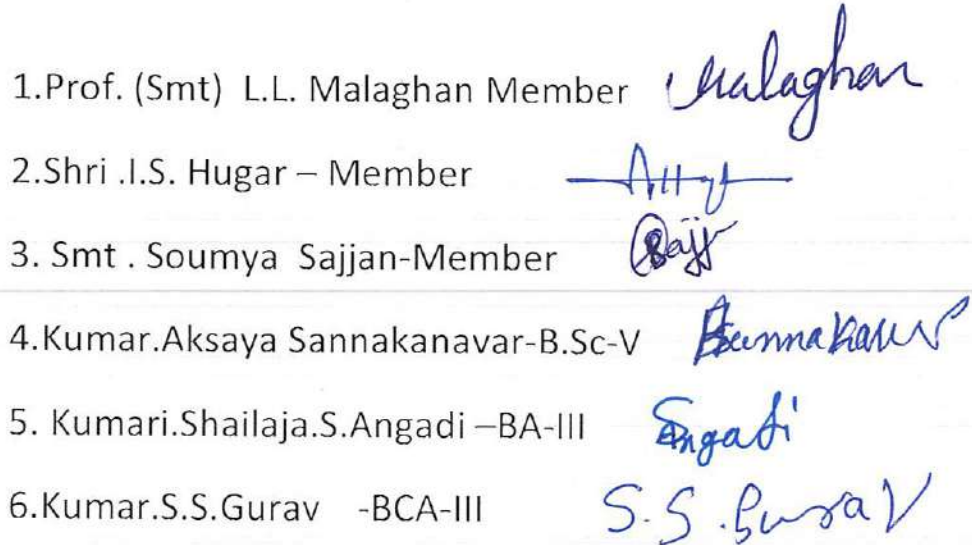 1.Prof. (Smt) L.L. Malaghan Member Malaghan
2.Shri .I.S. Hugar – Member
3. Smt . Soumya Sajjan-Member
4.Kumar.Aksaya Sannakanavar-B.Sc-V
5. Kumari.Shailaja.S.Angadi –BA-III Angadi
6.Kumar.S.S.Gurav -BCA-III S.S.Gurav